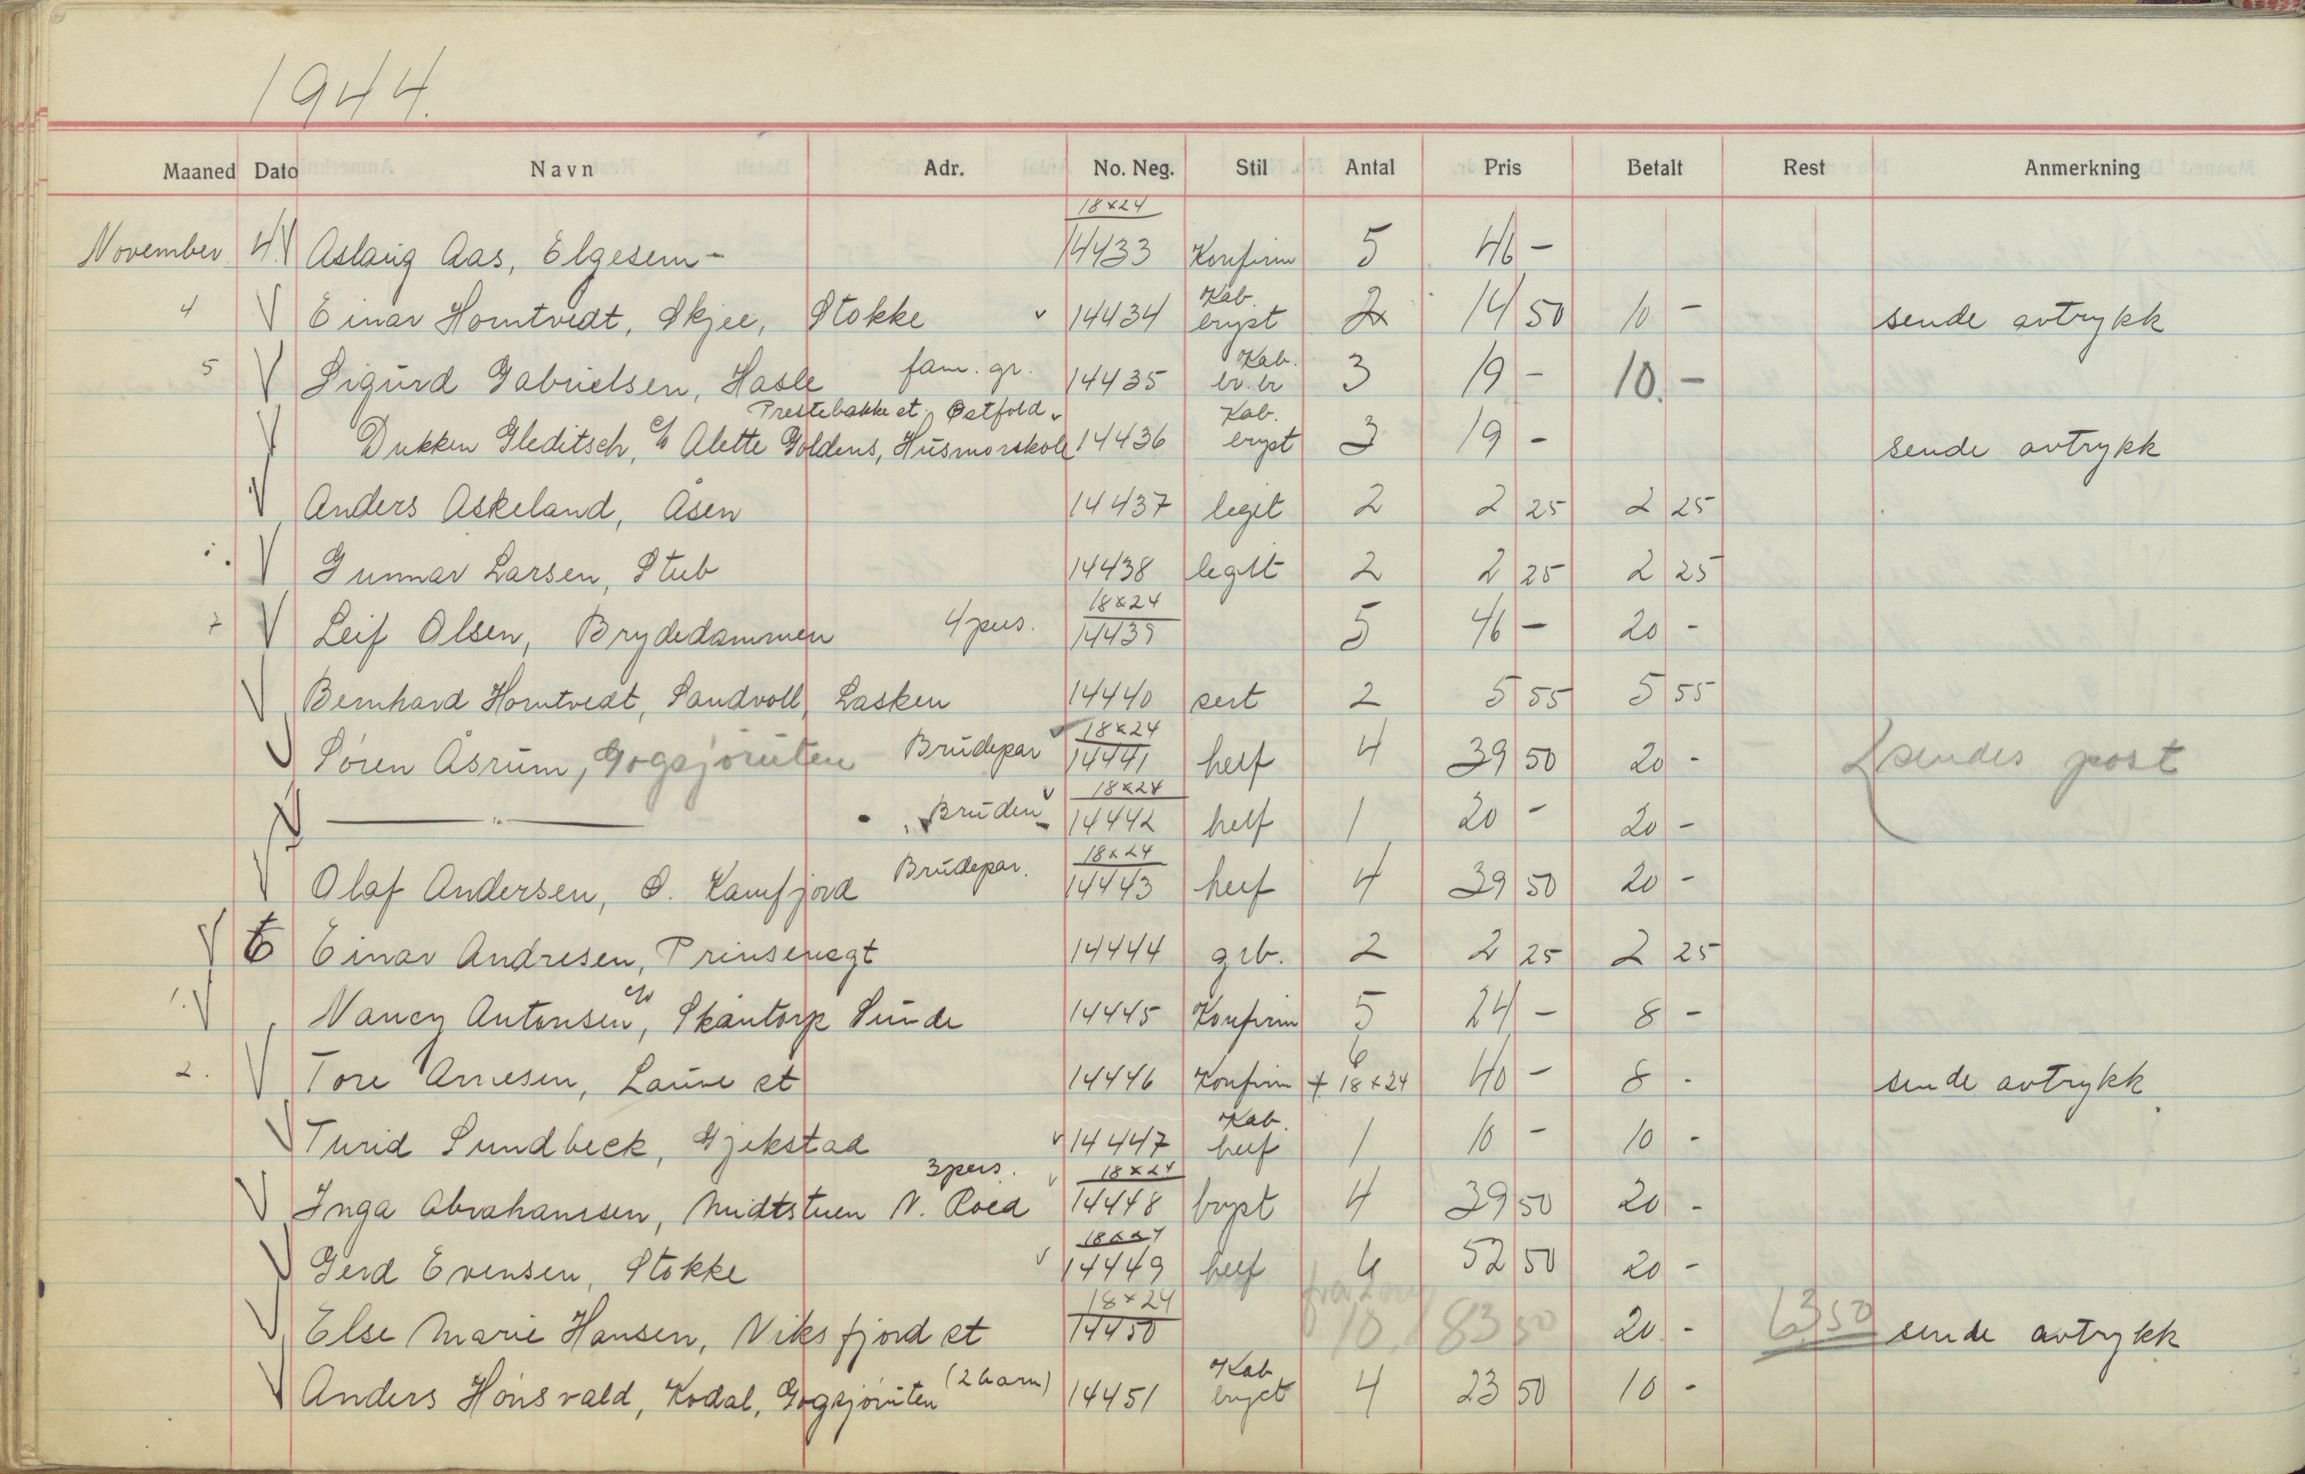 1944.
Maaned Dato Navn Adr. No. Neg. Stil Antal Pris Betalt Rest Anmerkning
18x24
November 4. V Aslaug Aas, Elgesem - 14433 Konfirm 5 46 -
Kab.
4 V Einar Horntvedt, Skjee, Stokke v 14434 bryst 2 14 50 10 - sende avtrykk
Kab.
5 V Sigurd Gabrielsen, Hasle fam. gr. 14435 br. br 3 19 - 10. -
Prestebakke st. Østfold v Kab.
V Dukken Gleditsch, c/o Alette Goldens, Husmorskole 14436 bryst 3 19 - sende avtrykk
V Anders Askeland, Åsen 14437 legit 2 2 25 2 25
V Gunnar Larsen, Stub 14438 legitt 2 2 25 2 25
18x24
7 V Leif Olsen, Brydedammen 4 pers. 14439 5 46 - 20 -
V Bernhard Horntvedt, Sandvoll, Lasken 14440 sert 2 5 55 5 55
18x24
V Søren Åsrum, Gogsjøruten Brudepar 14441 helf 4 39 50 20 - sendes post
18x24
V — " — Bruden 14442 helf 1 20 - 20 -
18x24
V Olaf Andersen, Ø. Kamfjord Brudepar. 14443 helf 4 39 50 20 -
V 6 Einar Andresen, Prinsensgt 14444 grb. 2 2 25 2 25
c/o
1. V Nancy Antonsen, Skantorp Sunde 14445 Konfirm 5 24 - 8 -
6
2. V Tore Arnesen, Lauve st 14446 Konfirm + 18x24 40 - 8 - sende avtrykk
Kab.
V Turid Sundbeck, Gjekstad v 14447 helf 1 10 - 10 -
3 pers. v 18x24
V Inga Abrahamsen, Midtstuen N. Roed 14448 bryst 4 39 50 20 -
18x24
V Gerd Evensen, Stokke v 14449 helf 6 52 50 20 -
18x24
V Else Marie Hansen, Viksfjord st 14450 10 83 50 20 - 63 50 sende avtrykk
(2 barn) Kab
V Anders Hønsvald, Kodal, Gogsjøruten 14451 bryst 4 23 50 10 -